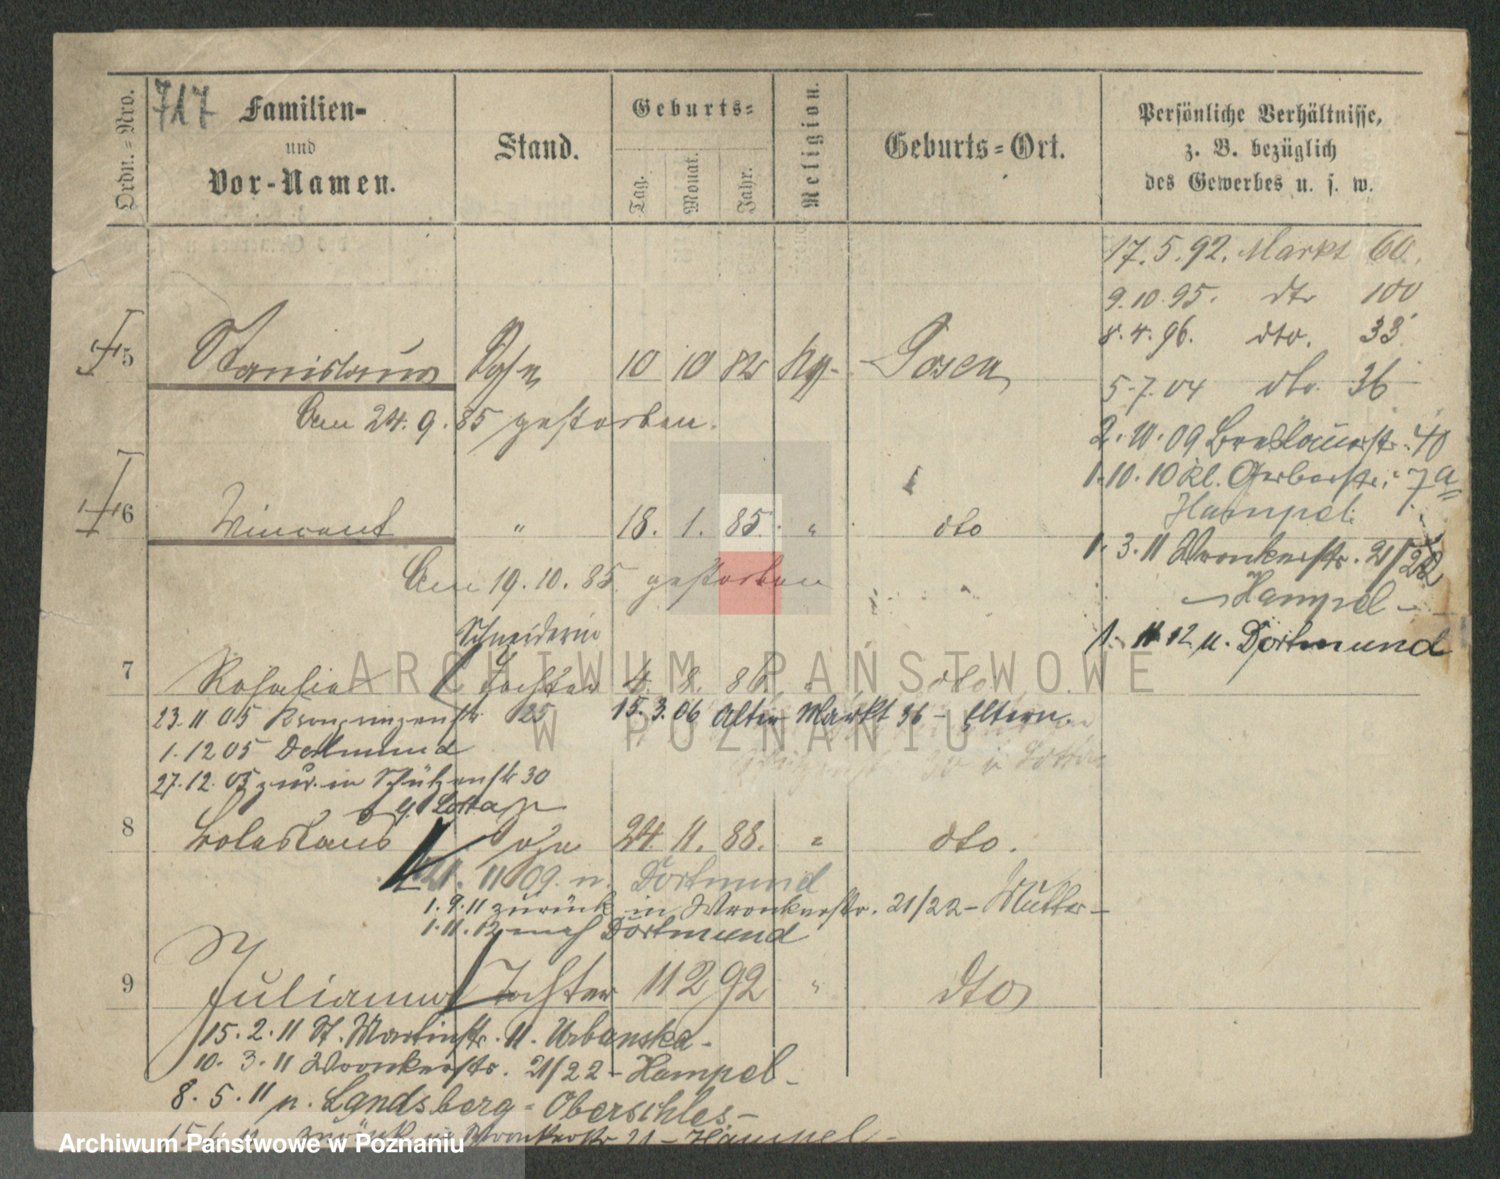 717
Ordn.=Nro.
Familien-
und
Vor-Namen.
Stand.
Geburts=
Tag.
Monat.
Jahr.
Religion.
Geburts=Ort.
Persönliche Verhältnisse,
z. B. bezüglich
des Gewerbes u. s. w.
17.5.92. Markt 60.
9.10.95. dto 100
8.4.96. dto. 33
5.7.04 dto. 36
2.10.09 Breslauerstr. 40
1.10.10 kl. Gerberstr. 7a
Hampel.
1.3.11 Wronkerstr. 21/22
Hampel
1.11.12 n. Dortmund
5 Stanislaus Sohn 10 10 82 Posen
Am 24.9.85 gestorben.
6 Vincent " 18. 1. 85. " dto
Am 19.10.85 gestorben
Schneiderin
7 Rosalie Tochter 4. 8. 86 " dto.
23.11 05 Kronprinzenstr. 25 15.3.06 Alter Markt 36 - Eltern
1.12 05 Dortmund
27.12.05 zur. in Schützenstr 30
8 Boleslaus Sohn 24. 11. 88. " dto.
11 09 n. Dortmund
1.9.11 zurück in Wronkerstr. 21/22 - Mutter -
1.11.12 nach Dortmund
9 Julianna Tochter 11 2 92 " dto
15.2.11 St. Martinstr. 11. Urbanska -
10.3.11 Wronkerstr. 21/22 - Hampel -
8.5.11 n. Landsberg - Oberschles -
zurück in Wronkerstr 21 - Hampel -
ARCHIWUM PAŃSTWOWE
W POZNANIU
Archiwum Państwowe w Poznaniu